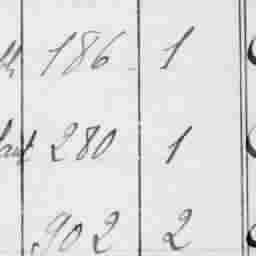 186 1
280 1
902 2